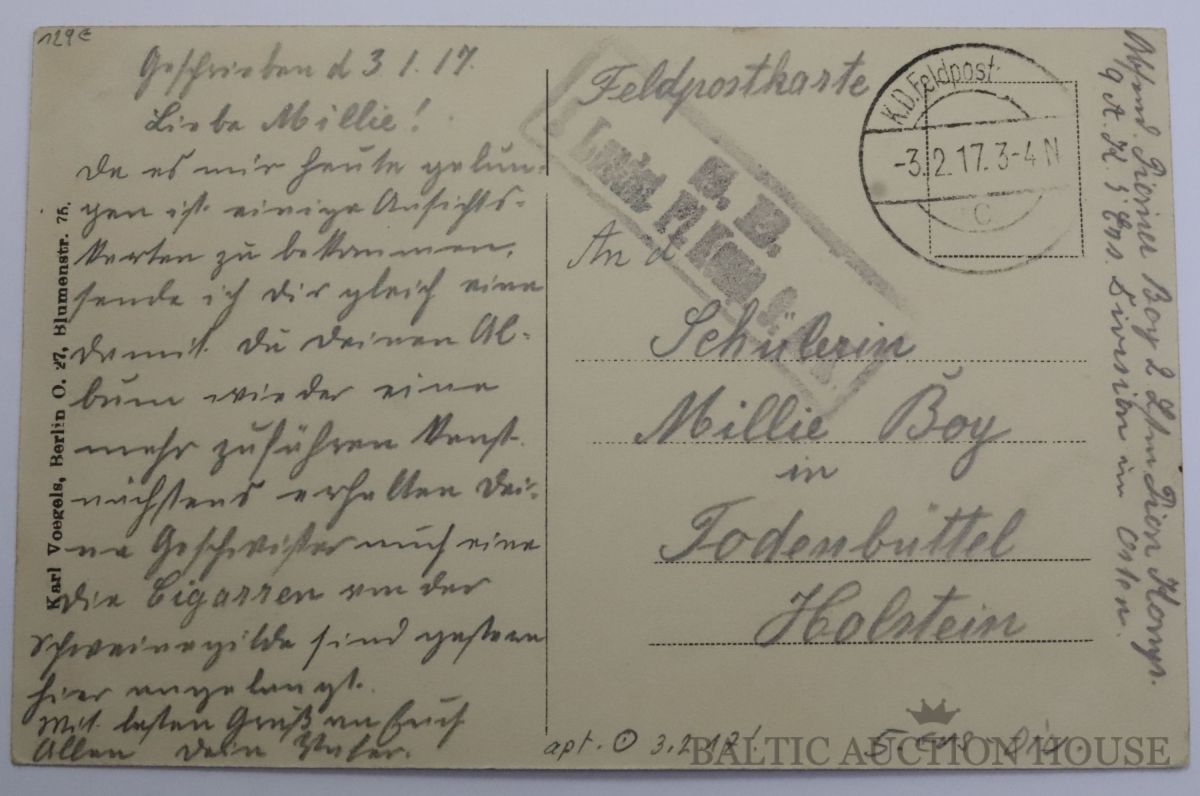 129 €
Geschrieben d 3.1.17.
Liebe Millie!
Da es mir heute gelun-
gen ist einige Ansichts-
karten zu bekommen,
sende ich dir gleich eine
damit du deinen Al-
bum wieder eine
mehr zuführen kanst.
nächstens erhalten dei-
ne Geschwister auch eine
die Cigarren von der
Schweinegilde sind gestern
hier angelangt.
Mit besten Gruß an Euch
Allen dein Vater.
Karl Voegels, Berlin O. 27, Blumenstr. 75.
Feldpostkarte
K.D. Feldpost
-3.2.17. 3-4 N
c
S. B.
An d
Schülerin
Millie Boy
in
Todenbüttel
Holstein
Absend. Pionier Boy 2 Ldtm Pion Komp.
9 A. K. 5 Ers Division im Osten.
apt. 3.2.17! 5. Ers-Div.
BALTIC AUCTION HOUSE